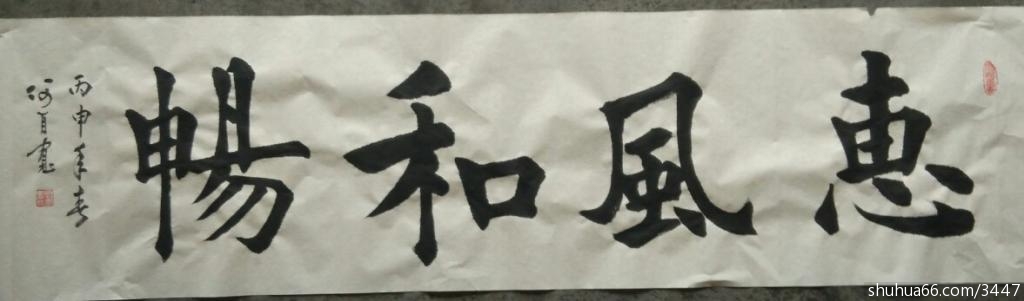 惠風和暢
丙申年春
shuhua66.com/3447